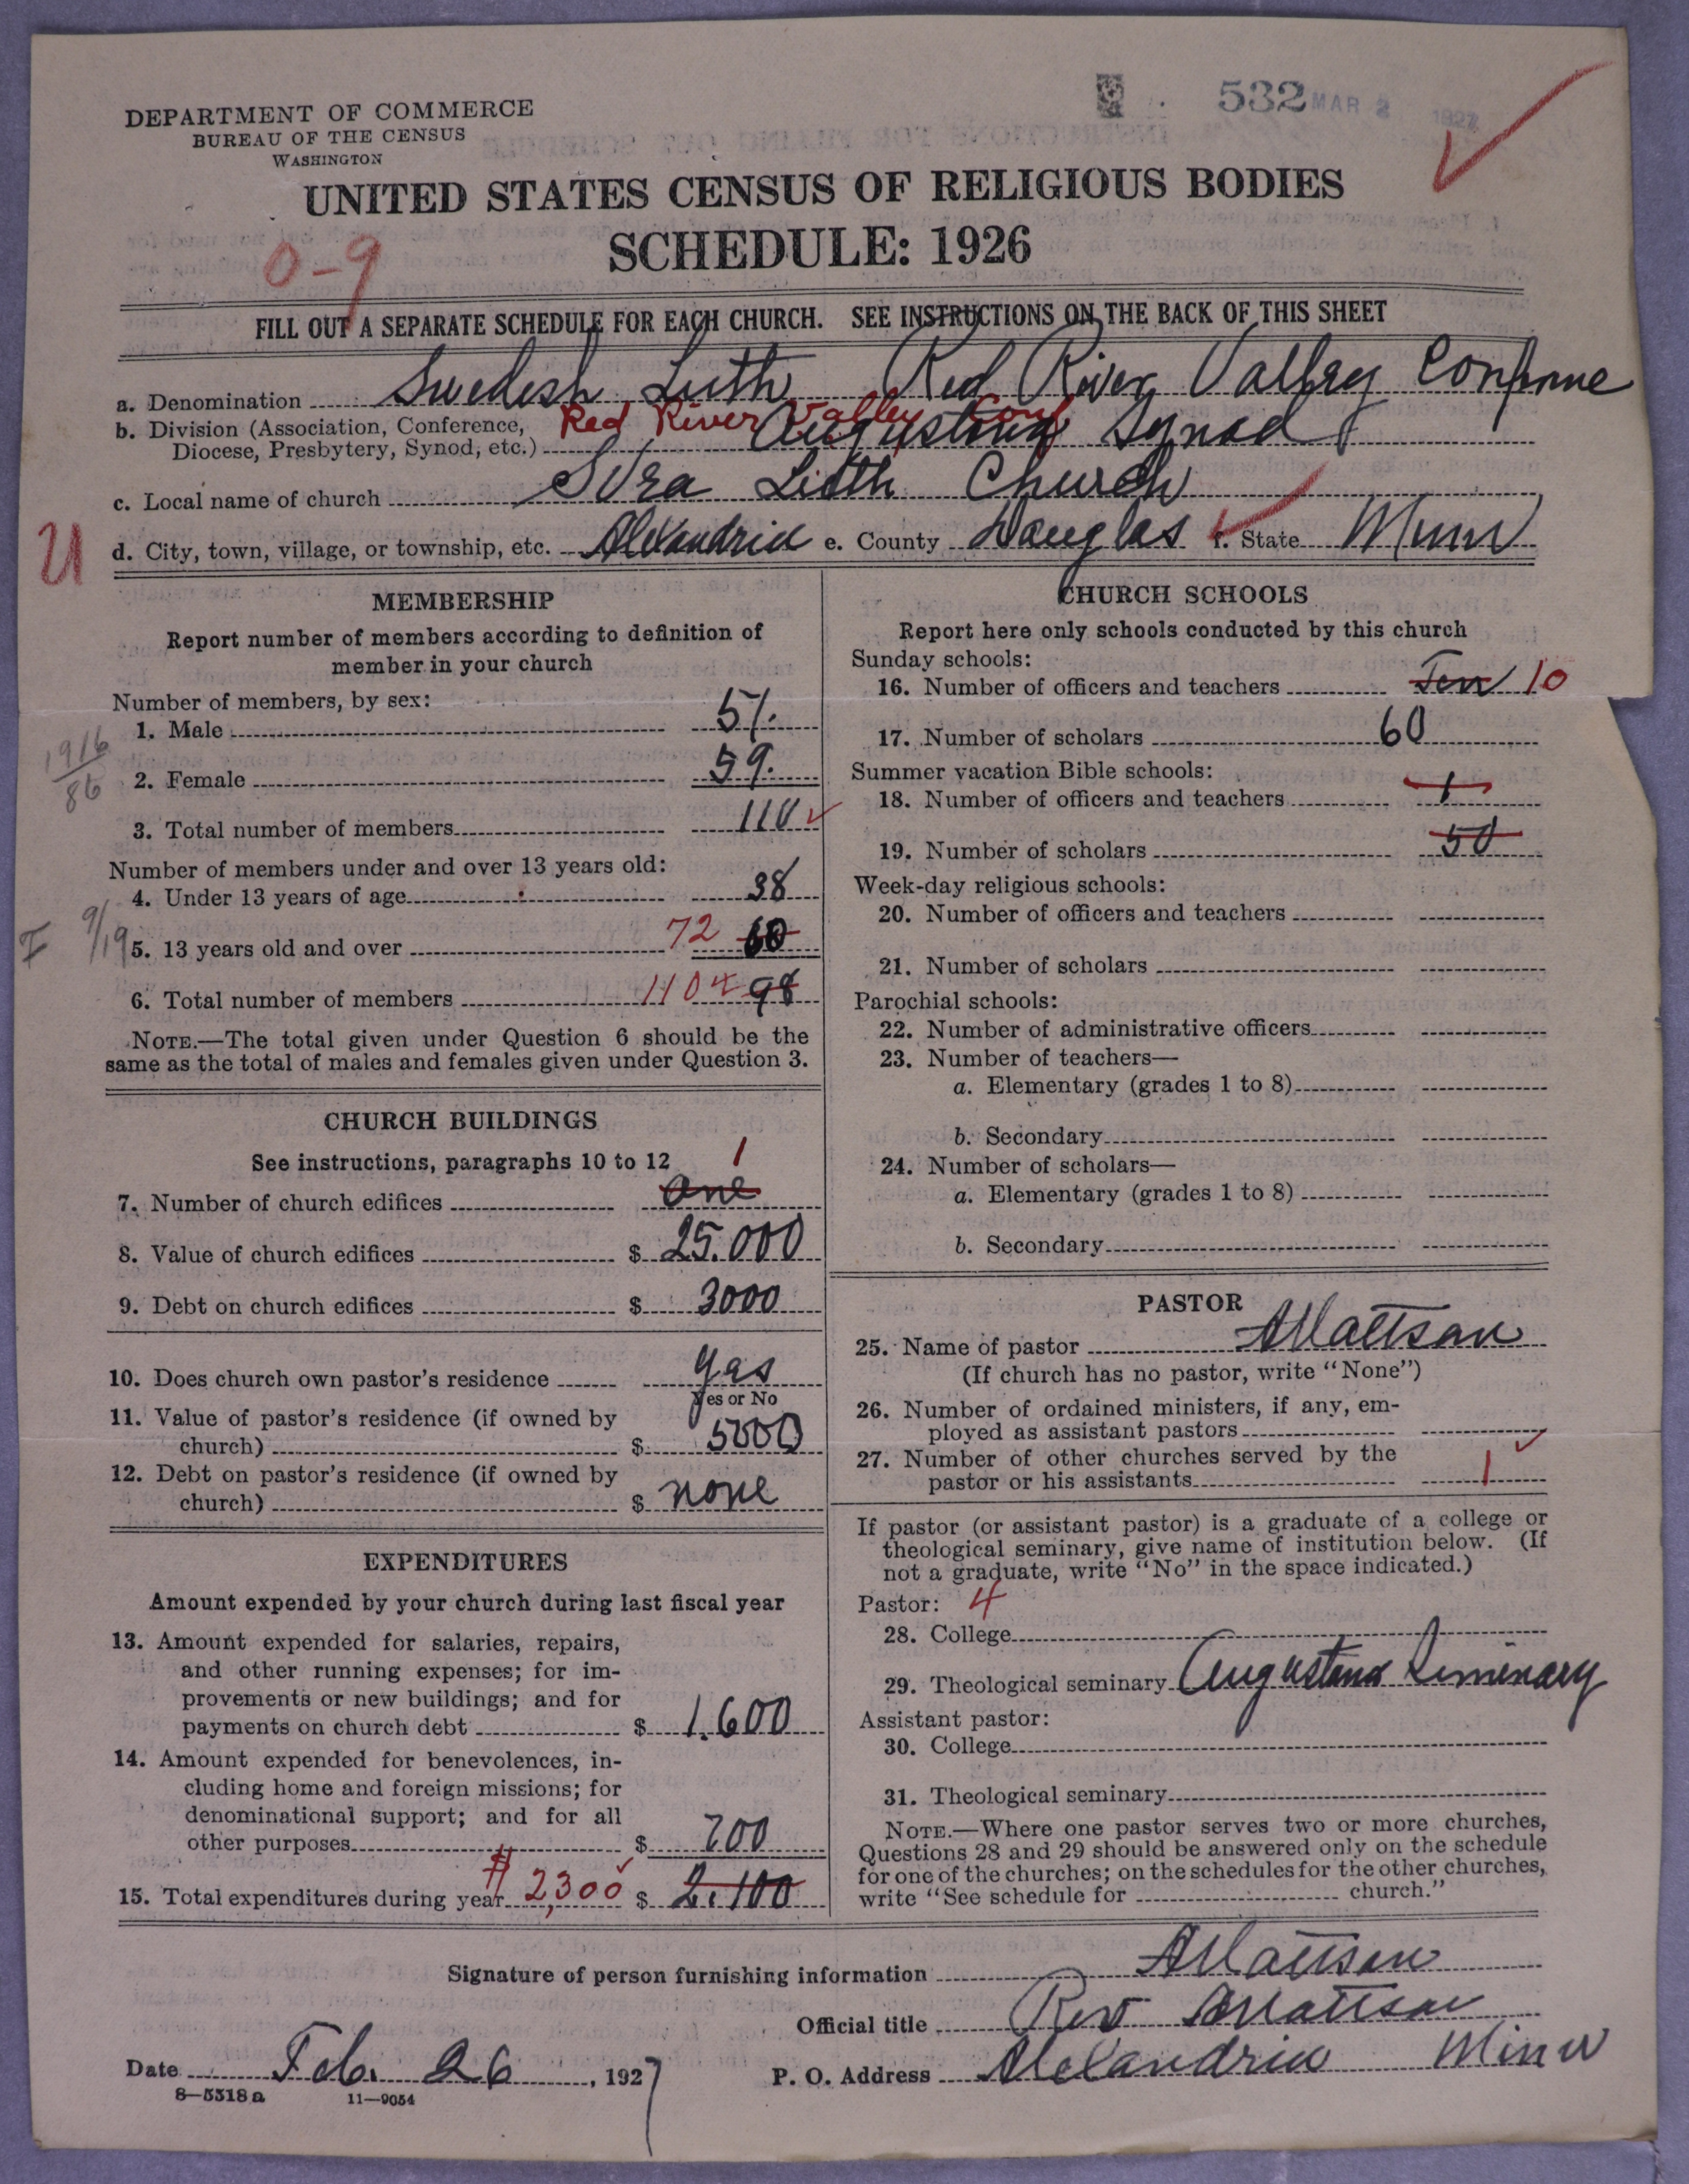 532 MAR 2 1927
DEPARTMENT OF COMMERCE
BUREAU OF THE CENSUS
WASHINGTON
UNITED STATES CENSUS OF RELIGIOUS BODIES
SCHEDULE: 1926
0-9
FILL OUT A SEPARATE SCHEDULE FOR EACH CHURCH. SEE INSTRUCTIONS ON THE BACK OF THIS SHEET
a. Denomination Swedish Luth Red River Valley
b. Division (Association, Conference, Red River Valley Conf
Diocese, Presbytery, Synod, etc.) Augustana Synod
c. Local name of church Svea Luth Church
U d. City, town, village, or township, etc. Alexandria e. County Douglas f. State Minn
MEMBERSHIP
Report number of members according to definition of
member in your church
Number of members, by sex:
1. Male 51.
1916
86
2. Female 59.
3. Total number of members 110
Number of members under and over 13 years old:
4. Under 13 years of age 38
9/19 5. 13 years old and over 72 60
6. Total number of members 110 98
NOTE.—The total given under Question 6 should be the
same as the total of males and females given under Question 3.
CHURCH BUILDINGS
See instructions, paragraphs 10 to 12 1
7. Number of church edifices One
8. Value of church edifices $ 25.000
9. Debt on church edifices $ 3000
10. Does church own pastor's residence yes
Yes or No
11. Value of pastor's residence (if owned by
church) $ 5000
12. Debt on pastor's residence (if owned by
church) $ none
EXPENDITURES
Amount expended by your church during last fiscal year
13. Amount expended for salaries, repairs,
and other running expenses; for im-
provements or new buildings; and for
payments on church debt $ 1.600
14. Amount expended for benevolences, in-
cluding home and foreign missions; for
denominational support; and for all
other purposes $ 700
15. Total expenditures during year $2,300 $ 2.100
CHURCH SCHOOLS
Report here only schools conducted by this church
Sunday schools:
16. Number of officers and teachers Ten 10
17. Number of scholars 60
Summer vacation Bible schools:
18. Number of officers and teachers 1
19. Number of scholars 50
Week-day religious schools:
20. Number of officers and teachers
21. Number of scholars
Parochial schools:
22. Number of administrative officers
23. Number of teachers—
a. Elementary (grades 1 to 8)
b. Secondary
24. Number of scholars—
a. Elementary (grades 1 to 8)
b. Secondary
PASTOR
25. Name of pastor A Mattson
(If church has no pastor, write "None")
26. Number of ordained ministers, if any, em-
ployed as assistant pastors
27. Number of other churches served by the
pastor or his assistants 1
If pastor (or assistant pastor) is a graduate of a college or
theological seminary, give name of institution below. (If
not a graduate, write "No" in the space indicated.)
Pastor: 4
28. College
29. Theological seminary Augustana Seminary
Assistant pastor:
30. College
31. Theological seminary
NOTE.—Where one pastor serves two or more churches,
Questions 28 and 29 should be answered only on the schedule
for one of the churches; on the schedules for the other churches,
write "See schedule for church."
Signature of person furnishing information A Mattson
Official title Rev A Mattson
Date Feb. 26, 1927 P. O. Address Alexandria Minn
8—5518a 11—9054